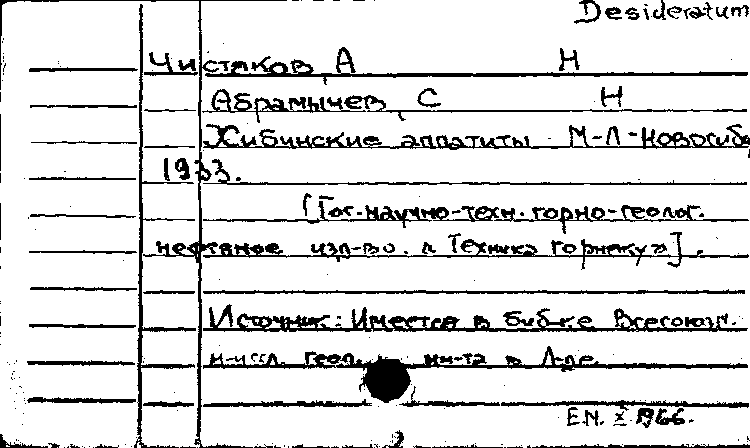 Desideratum
Чистяков, А Н
Абрамычев, С Н
Хибинские аппатиты. М-Л-Новосиб
1933.
[Гос.-научно-техн. горно-геолог.
нефтяное изд-во. "Техника горняку»].
Источник: Имеется в биб-ке Всесоюзн.
н-иссл. геол. ин-та в Л-де.
E.N. X 1966.